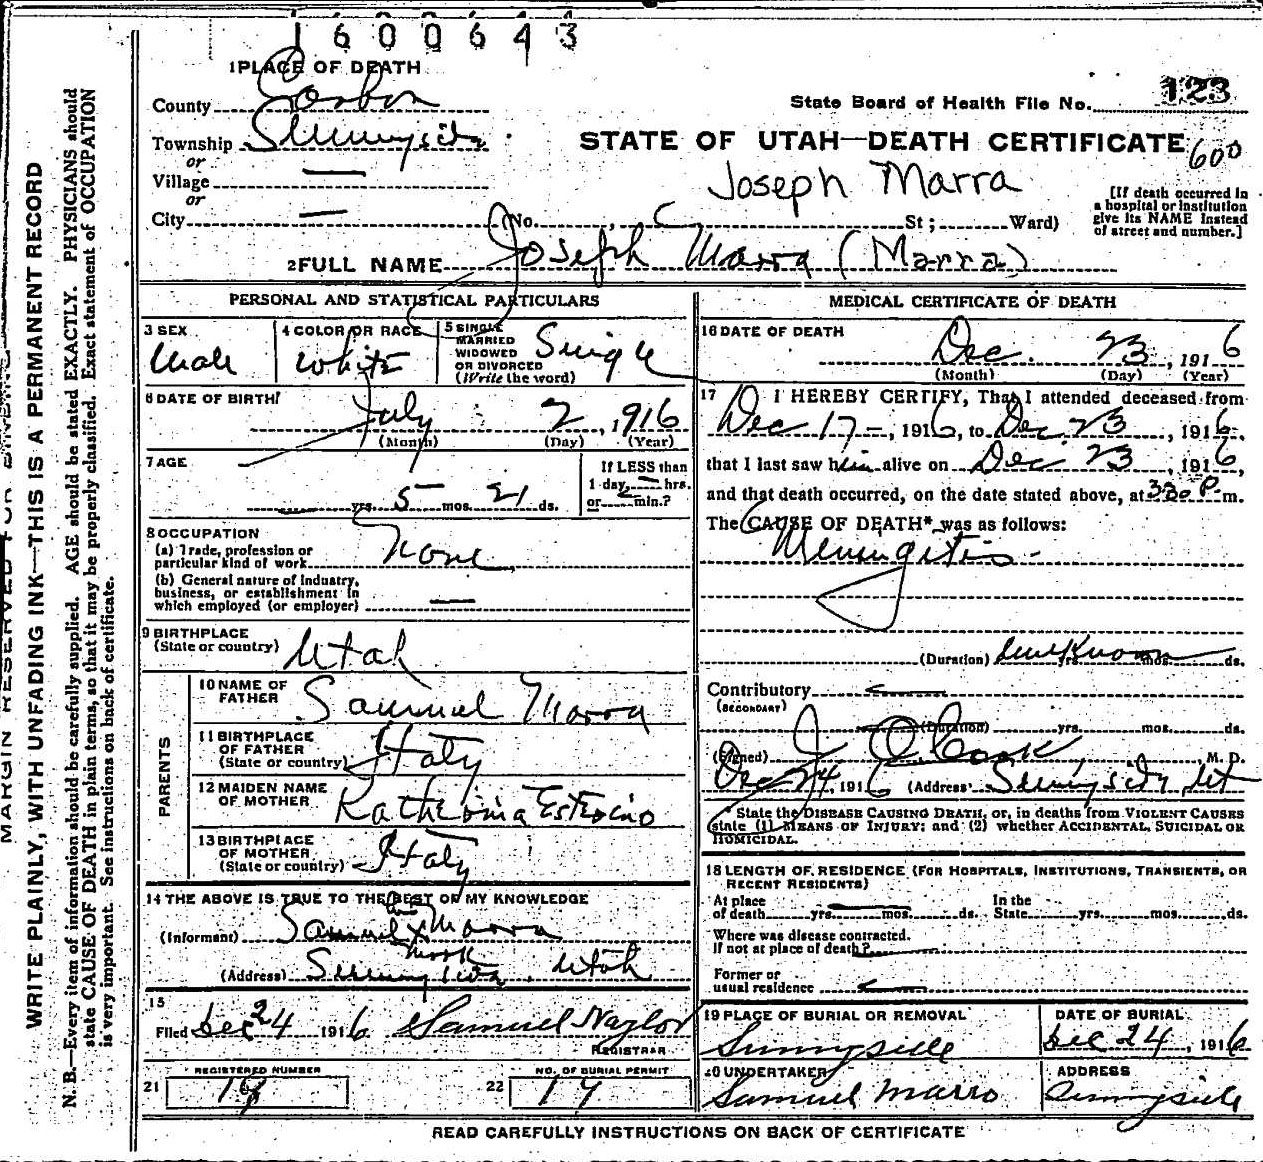 1600643
1 PLACE OF DEATH
County Carbon
State Board of Health File No. 123
Township Sunnyside
STATE OF UTAH—DEATH CERTIFICATE 600
or
Village —
Joseph Marra
or
City —
(No. , St; Ward)
[If death occurred in
a hospital or institution
give its NAME instead
of street and number.]
2 FULL NAME Joseph Marra (Marra)
PERSONAL AND STATISTICAL PARTICULARS
3 SEX
Male
4 COLOR OR RACE
White
5 SINGLE
MARRIED
WIDOWED
OR DIVORCED
(Write the word)
Single
6 DATE OF BIRTH
July 2, 1916
(Month) (Day) (Year)
7 AGE
— yrs. 5 mos. 21 ds.
If LESS than
1 day, — hrs.
or — min.?
8 OCCUPATION
(a) Trade, profession or
particular kind of work None
(b) General nature of industry,
business, or establishment in
which employed (or employer) —
9 BIRTHPLACE
(State or country) Utah
PARENTS
10 NAME OF
FATHER Samuel Marra
11 BIRTHPLACE
OF FATHER
(State or country) Italy
12 MAIDEN NAME
OF MOTHER Katherina
13 BIRTHPLACE
OF MOTHER
(State or country) Italy
14 THE ABOVE IS TRUE TO THE BEST OF MY KNOWLEDGE
his
(Informant) Samuel x Marra
mark
(Address) Sunnyside, Utah
15
Filed Dec 24 1916 Samuel Naylor
REGISTRAR
21 REGISTERED NUMBER
22 NO. OF BURIAL PERMIT
MEDICAL CERTIFICATE OF DEATH
16 DATE OF DEATH
Dec. 23, 1916
(Month) (Day) (Year)
17 I HEREBY CERTIFY, That I attended deceased from
Dec 17 —, 1916, to Dec. 23, 1916,
that I last saw him alive on Dec 23, 1916,
and that death occurred, on the date stated above, at 330 P m.
The CAUSE OF DEATH* was as follows:
Meningitis —
(Duration) unknown yrs. mos. ds.
Contributory —
(SECONDARY)
(Duration) yrs. mos. ds.
(Signed) J. O. Cook, M. D.
Dec 24, 1916 (Address) Sunnyside, Ut
*State the DISEASE CAUSING DEATH, or, in deaths from VIOLENT CAUSES
state (1) MEANS OF INJURY; and (2) whether ACCIDENTAL, SUICIDAL OR
HOMICIDAL.
18 LENGTH OF RESIDENCE (FOR HOSPITALS, INSTITUTIONS, TRANSIENTS, OR
RECENT RESIDENTS)
At place
of death yrs. mos. ds.
In the
State yrs. mos. ds.
Where was disease contracted,
If not at place of death? —
Former or
usual residence —
19 PLACE OF BURIAL OR REMOVAL
Sunnyside
DATE OF BURIAL
Dec 24, 1916
20 UNDERTAKER
Samuel Marro
ADDRESS
Sunnyside
READ CAREFULLY INSTRUCTIONS ON BACK OF CERTIFICATE
MARGIN RESERVED FOR
WRITE PLAINLY, WITH UNFADING INK—THIS IS A PERMANENT RECORD
N. B.—Every item of information should be carefully supplied. AGE should be stated EXACTLY. PHYSICIANS should
state CAUSE OF DEATH in plain terms, so that it may be properly classified. Exact statement of OCCUPATION
is very important. See instructions on back of certificate.